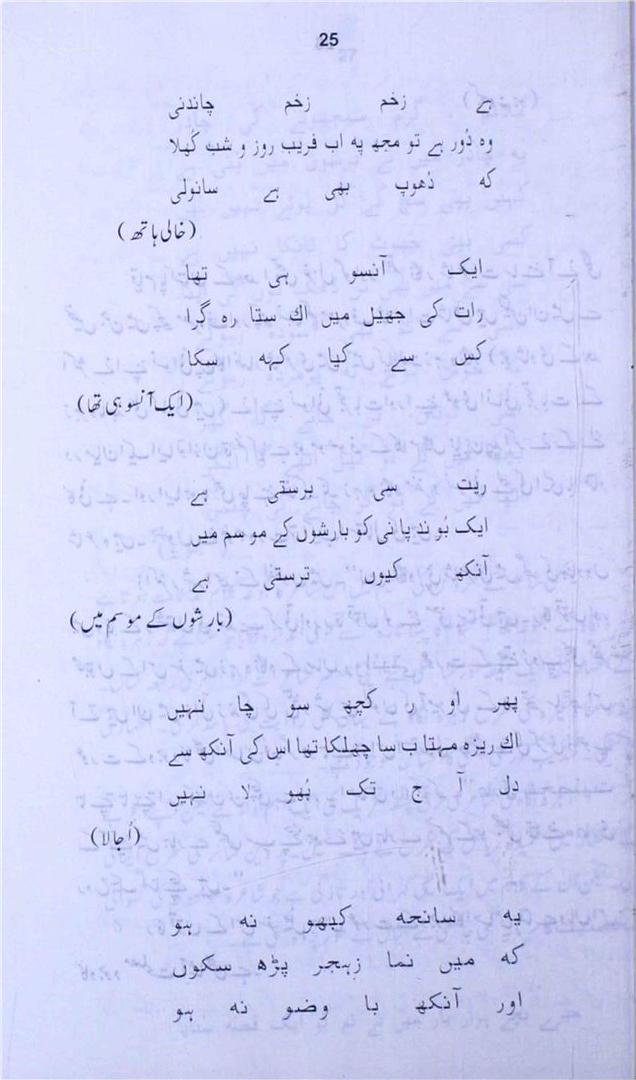 25
ہے زخم زخم چاندنی
وہ دُور ہے تو مجھ پہ اب فریب روز و شب کُھلا
کہ دُھوپ بھی ہے سانولی
(خالی ہاتھ)
ایک آنسو ہی تھا
رات کی جھیل میں اك ستا رہ گرا
کس سے کیا کہہ سکا
(ایک آنسو ہی تھا)
ریت سی برستی ہے
ایک بُوند پانی کو بارشوں کے موسم میں
آنکھ کیوں ترستی ہے
(بارشوں کے موسم میں)
پھر اور کچھ سوچا نہیں
اك ریزہ مہتاب سا چھلکا تھا اس کی آنکھ سے
دل آج تک بُھولا نہیں
(اُجالا)
یہ سانحہ کبھو نہ ہو
کہ میں نماز ہجر پڑھ سکوں
اور آنکھ با وضو نہ ہو